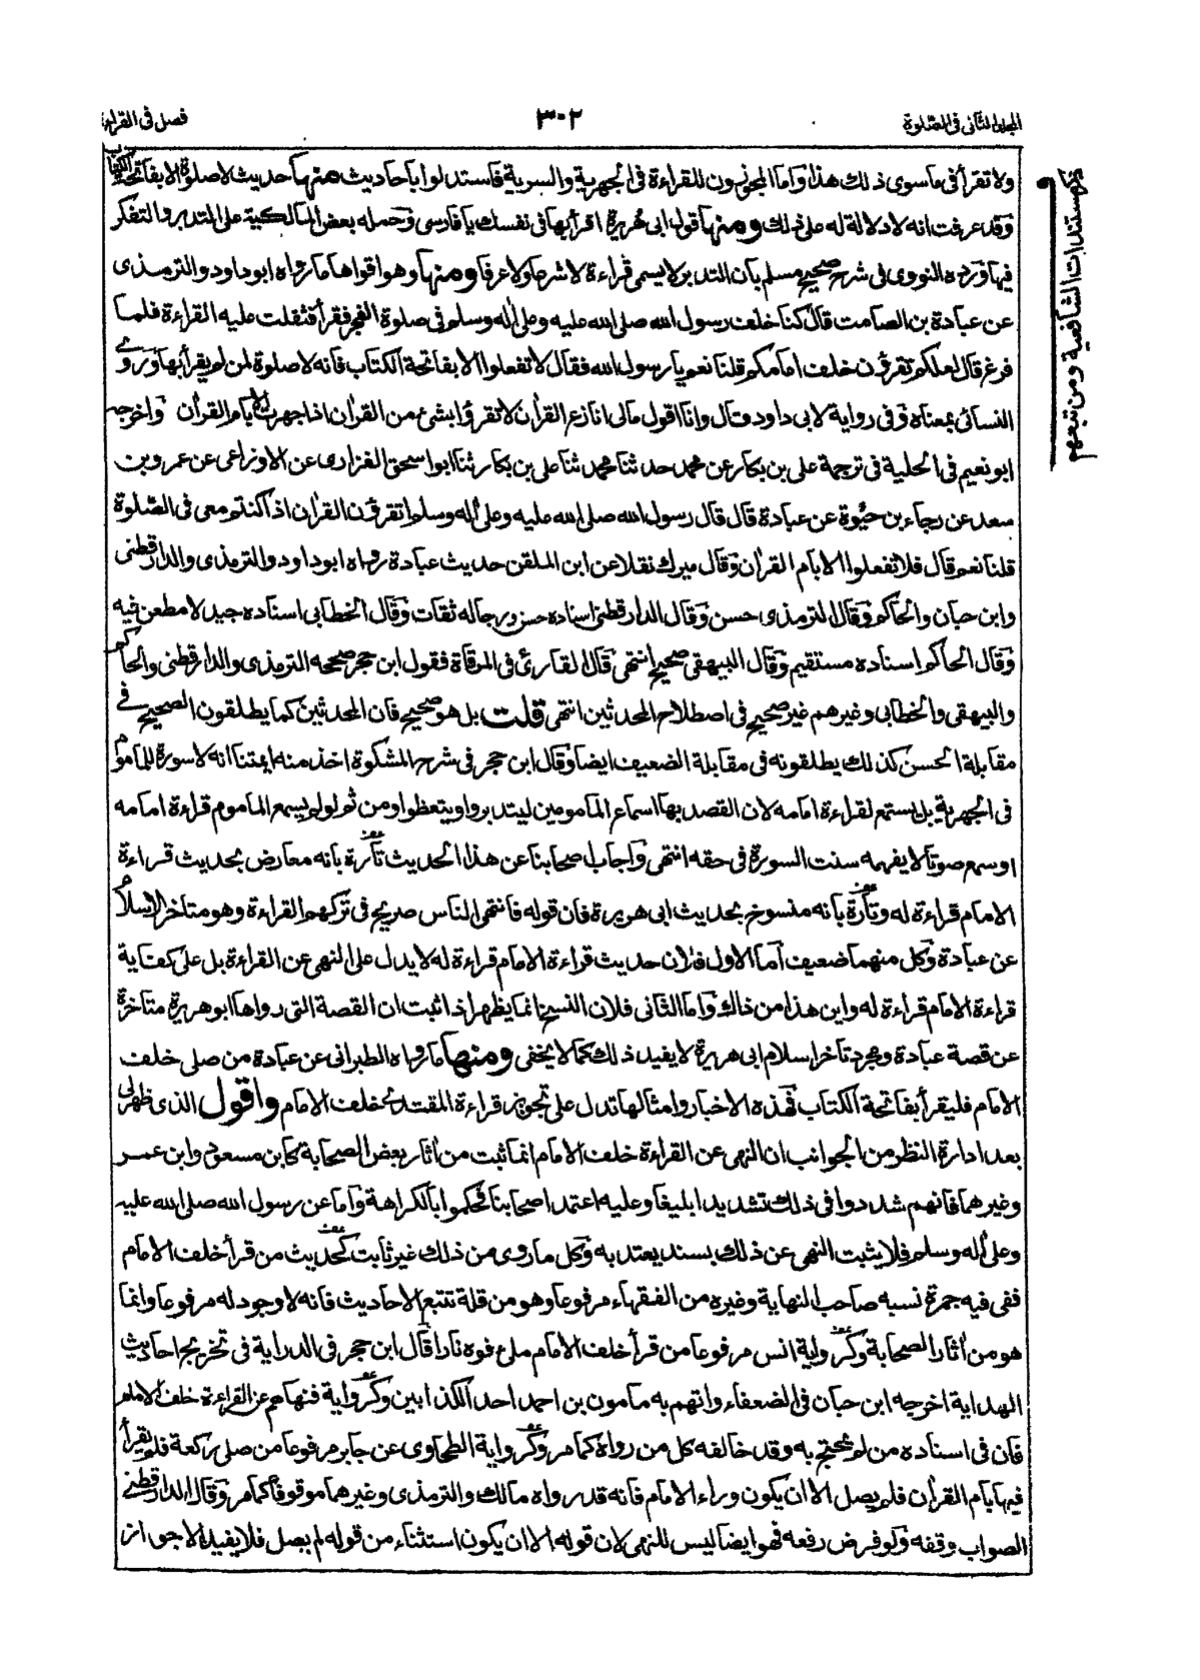 المجلد الثانى فى الصلوة
٣٠٢
فصل فى القراءة
ولا تقرأ فى ما سوى ذلك هذا واما المجوزون للقراءة فى الجهرية والسرية فاستدلوا باحاديث منها حديث لا صلوة الا بفاتحة الكتاب
وقد عرفت انه لا دلالة له على ذلك ومنها قول ابى هريرة اقرأ بها فى نفسك يا فارسى وحمله بعض المالكية على التدبر والتفكر
فيها ورده النووى فى شرح صحيح مسلم بان التدبر لا يسمى قراءة لا شرعا ولا عرفا ومنها وهو اقواها ما رواه ابو داود والترمذى
عن عبادة بن الصامت قال كنا خلف رسول الله صلى الله عليه وعلى اله وسلم فى صلوة الفجر فقرأ فثقلت عليه القراءة فلما
فرغ قال لعلكم تقرؤن خلف امامكم قلنا نعم يا رسول الله فقال لا تفعلوا الا بفاتحة الكتاب فانه لا صلوة لمن لم يقرأ بها وروى
النسائى بمعناه وفى رواية لابى داود وقال وانا اقول مالى انازع القرآن لا تقرؤا بشئ من القرآن اذا جهرت الا بام القرآن واخرجه
ابو نعيم فى الحلية فى ترجمة على بن بكار عن محمد حدثنا محمد ثنا على بن بكار ثنا ابو اسحق الفزارى عن الاوزاعى عن عمرو بن
سعد عن رجاء بن حيوة عن عبادة قال قال رسول الله صلى الله عليه وعلى اله وسلم اتقرؤن القرآن اذا كنتم معى فى الصلوة
قلنا نعم قال فلا تفعلوا الا بام القرآن وقال ميرك نقلا عن ابن الملقن حديث عبادة رواه ابو داود والترمذى والدارقطنى
وابن حبان والحاكم وقال الترمذى حسن وقال الدارقطنى اسناده حسن ورجاله ثقات وقال الخطابى اسناده جيد لا مطعن فيه
وقال الحاكم اسناده مستقيم وقال البيهقى صحيح انتهى قال القارئ فى المرقاة فقول ابن حجر صححه الترمذى والدارقطنى والحاكم
والبيهقى والخطابى وغيرهم غير صحيح فى اصطلاح المحدثين انتهى قلت بل هو صحيح فان المحدثين كما يطلقون الصحيح فى
مقابلة الحسن كذلك يطلقونه فى مقابلة الضعيف ايضا وقال ابن حجر فى شرح المشكوة اخذ منه ايمتنا انه لا سورة للماموم
فى الجهرية بل يستمع لقراءة امامه لان القصد بها اسماع المامومين ليتدبروا ويتعظوا ومن ثم لو لم يسمع الماموم قراءة امامه
او سمع صوتا لا يفهمه سنت السورة فى حقه انتهى واجاب اصحابنا عن هذا الحديث تارة بانه معارض بحديث قراءة
الامام قراءة له وتارة بانه منسوخ بحديث ابى هريرة فان قوله فانتهى الناس صريح فى تركهم القراءة وهو متاخر الاسلام
عن عبادة وكل منهما ضعيف اما الاول فلان حديث قراءة الامام قراءة له لا يدل على النهى عن القراءة بل على كفاية
قراءة الامام قراءة له واين هذا من ذاك واما الثانى فلان النسخ انما يظهر اذا ثبت ان القصة التى رواها ابو هريرة متاخرة
عن قصة عبادة ومجرد تاخر اسلام ابى هريرة لا يفيد ذلك كما لا يخفى ومنها ما رواه الطبرانى عن عبادة من صلى خلف
الامام فليقرأ بفاتحة الكتاب فهذه الاخبار وامثالها تدل على تجويز قراءة المقتدى خلف الامام واقول الذى ظهر لى
بعد ادارة النظر من الجوانب ان النهى عن القراءة خلف الامام انما ثبت من آثار بعض الصحابة كابن مسعود وابن عمر
وغيرهما فانهم شددوا فى ذلك تشديدا بليغا وعليه اعتمد اصحابنا فحكموا بالكراهة واما عن رسول الله صلى الله عليه
وعلى اله وسلم فلا يثبت النهى عن ذلك بسند يعتد به وكل ما روى من ذلك غير ثابت كحديث من قرأ خلف الامام
ففى فيه جمرة نسبه صاحب النهاية وغيره من الفقهاء مرفوعا وهو من قلة تتبع الاحاديث فانه لا وجود له مرفوعا وانما
هو من آثار الصحابة وكرواية انس مرفوعا من قرأ خلف الامام ملئ فوه نارا قال ابن حجر فى الدراية فى تخريج احاديث
الهداية اخرجه ابن حبان فى الضعفاء واتهم به مامون بن احمد احد الكذابين وكرواية فنهاهم عن القراءة خلف الامام
فان فى اسناده من لم يحتج به وقد خالفه كل من رواه كما مر وكرواية الطحاوى عن جابر مرفوعا من صلى ركعة فلم يقرأ
فيها بام القرآن فلم يصل الا ان يكون وراء الامام فانه قد رواه مالك والترمذى وغيرهما موقوفا كما مر وقال الدارقطنى
الصواب وقفه ولو فرض رفعه فهو ايضا ليس للنهى لان قوله الا ان يكون استثناء من قوله لم يصل فلا يفيد الا جواز
مستندات الشافعية ومن تبعهم